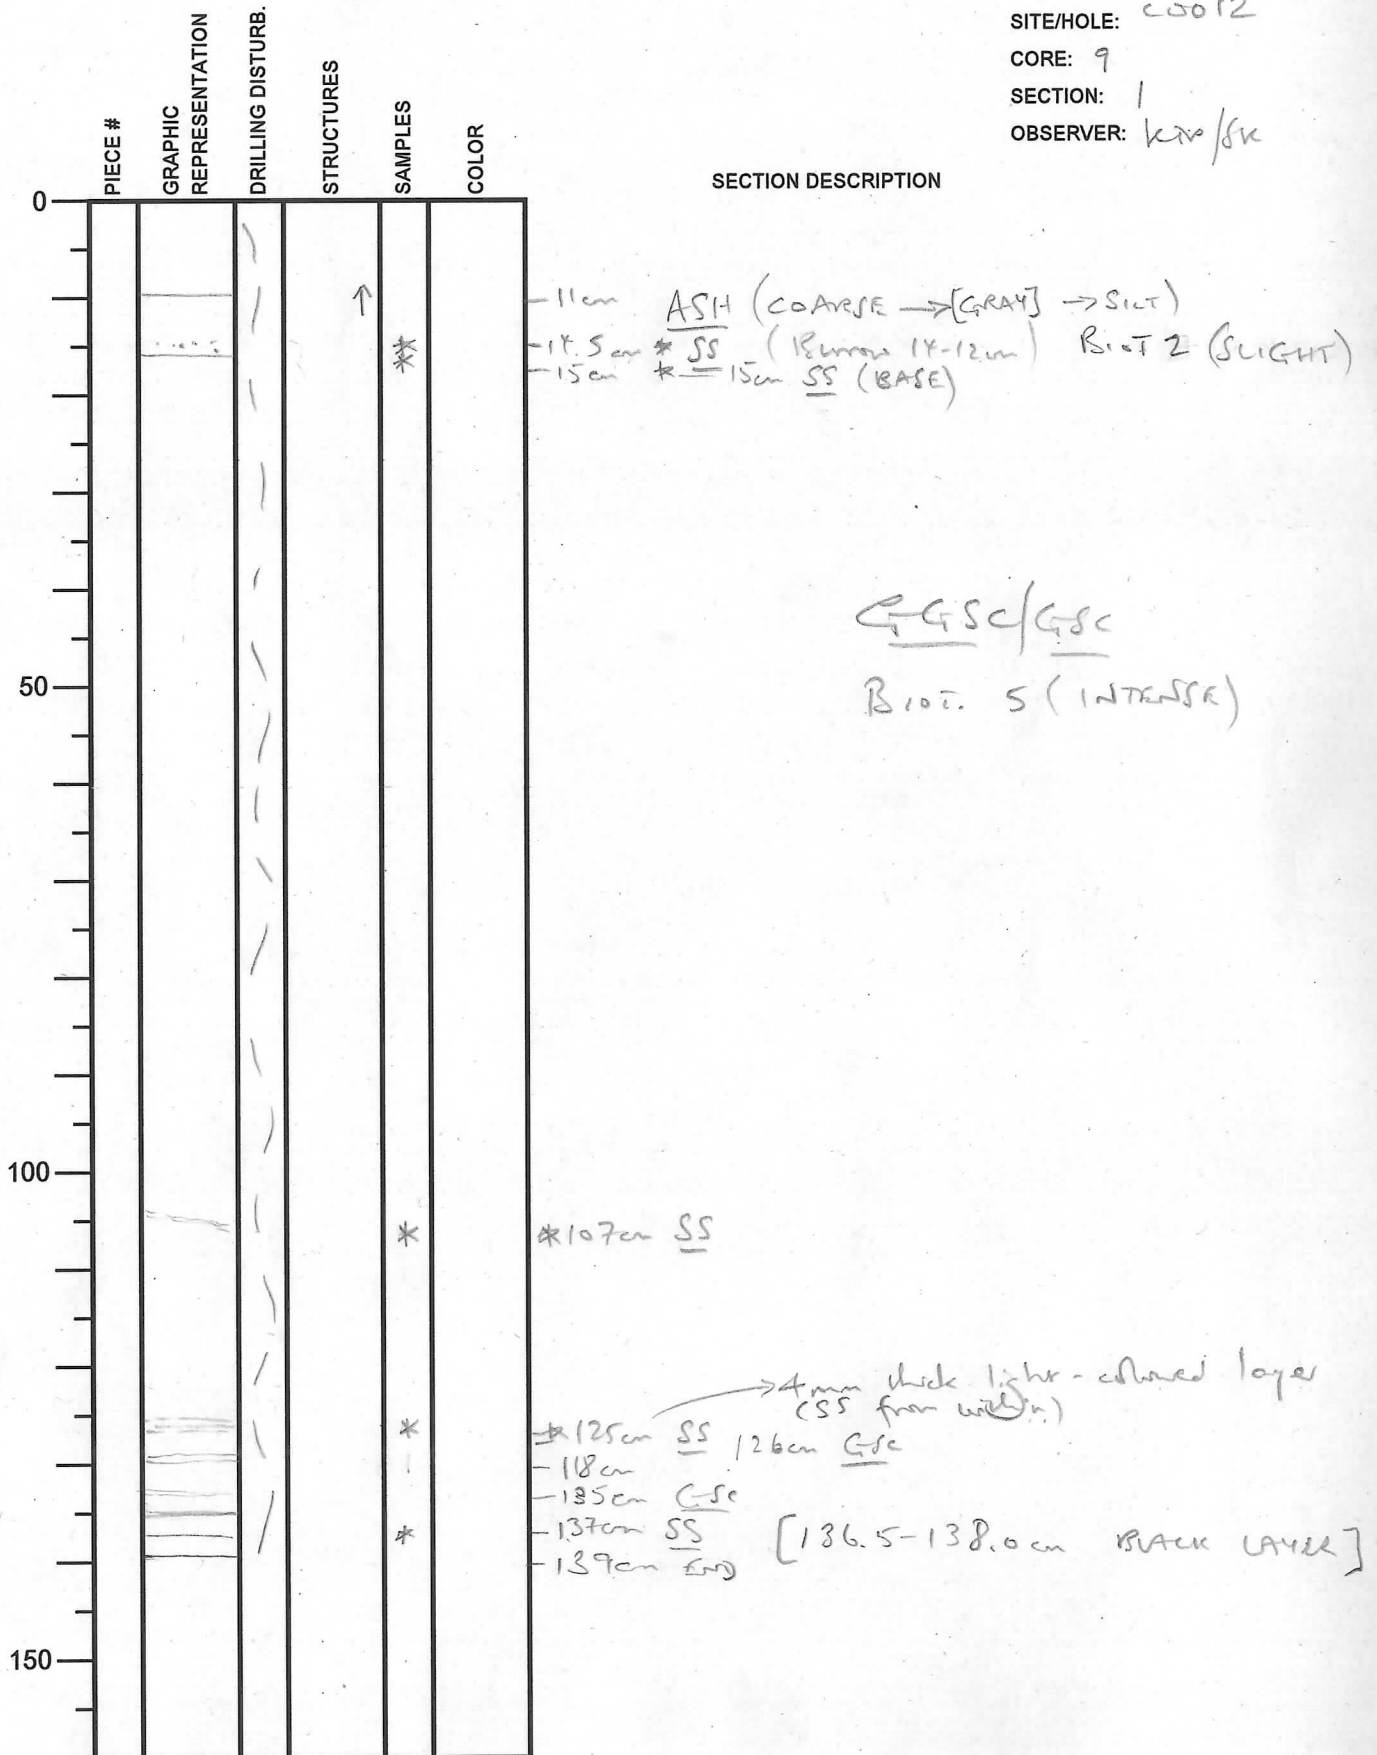 SITE/HOLE: C0012
CORE: 9
SECTION: 1
OBSERVER:
PIECE #
GRAPHIC REPRESENTATION
DRILLING DISTURB.
STRUCTURES
SAMPLES
COLOR
SECTION DESCRIPTION
0
50
100
150
-11cm ASH (COARSE →[GRAY] → SILT)
-14.5 cm * SS (Burrow 14-12cm) BIOT 2 (SLIGHT)
-15cm *-15cm SS (BASE)
GGSC/GSC
BIOT. 5 (INTENSE)
*107cm SS
→4mm thick light-coloured layer
(SS from within)
*125cm SS 126cm GSC
-118cm
-135cm GSC
-137cm SS [136.5-138.0cm BLACK LAYER]
-139cm END